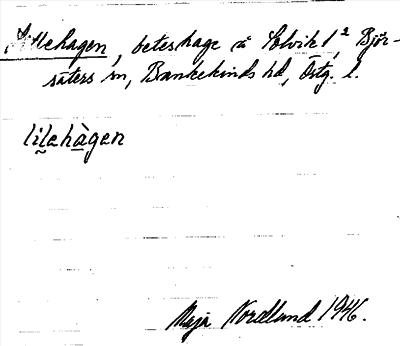 Lillehagen, beteshage å Solvik 1², Björ-
säters sn, Bankekinds hd, Östg. l.
lilehàgen
Maja Nordlund 1946.